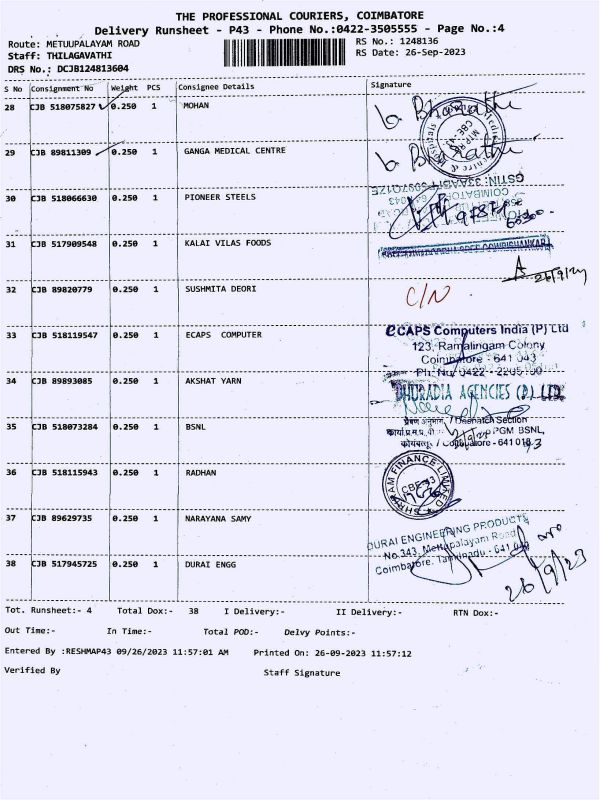 THE PROFESSIONAL COURIERS, COIMBATORE
Delivery Runsheet - P43 - Phone No.:0422-3505555 - Page No.:4
Route: METUUPALAYAM ROAD RS No.: 1248136
Staff: THILAGAVATHI RS Date: 26-Sep-2023
DRS No.: DCJB124813604
S No Consignment No Weight PCS Consignee Details Signature
28 CJB 518075827 0.250 1 MOHAN
29 CJB 89811309 0.250 1 GANGA MEDICAL CENTRE
30 CJB 518066630 0.250 1 PIONEER STEELS
31 CJB 517909548 0.250 1 KALAI VILAS FOODS
26/9/23
32 CJB 89820779 0.250 1 SUSHMITA DEORI C/N
33 CJB 518119547 0.250 1 ECAPS COMPUTER
eCAPS Computers India (P) Ltd
123, Ramalingam Colony
Coimbatore - 641 043
Ph: No: 0422 - 2205100
34 CJB 89893085 0.250 1 AKSHAT YARN
DHURADIA AGENCIES (P) LTD.
35 CJB 518073284 0.250 1 BSNL
Despatch Section
PGM BSNL,
Coimbatore - 641 043
36 CJB 518115943 0.250 1 RADHAN
SHRIRAM FINANCE LIMITED
CBE-43
37 CJB 89629735 0.250 1 NARAYANA SAMY
DURAI ENGINEERING PRODUCTS
No.343, Mettupalayam Road
Coimbatore, Tamilnadu - 641 043
38 CJB 517945725 0.250 1 DURAI ENGG
26/9/23
Tot. Runsheet:- 4 Total Dox:- 38 I Delivery:- II Delivery:- RTN Dox:-
Out Time:- In Time:- Total POD:- Delvy Points:-
Entered By :RESHMAP43 09/26/2023 11:57:01 AM Printed On: 26-09-2023 11:57:12
Verified By Staff Signature